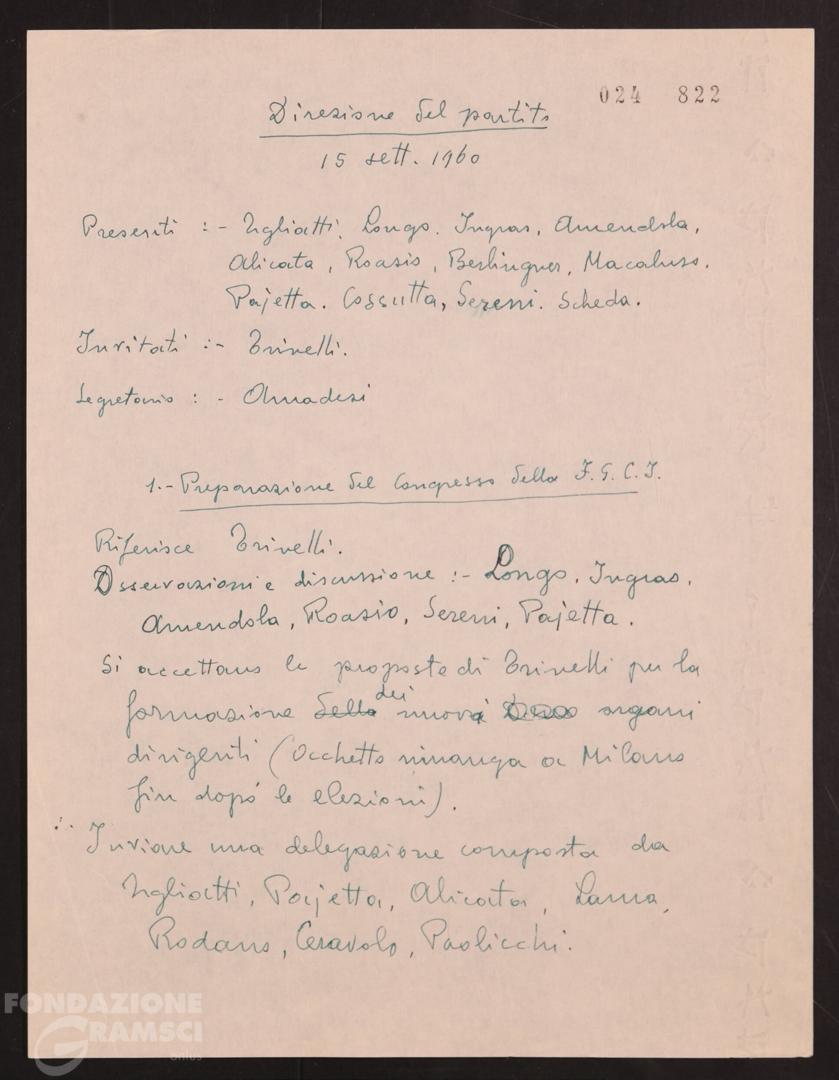 024 822
Direzione del partito
15 sett. 1960
Presenti :- Togliatti, Longo. Ingrao, Amendola,
Alicata, Roasio, Berlinguer, Macaluso.
Pajetta. Cossutta, Sereni. Scheda.
Invitati :- Trivelli.
Segretario : - Amadesi
1.- Preparazione del Congresso della F.G.C.I.
Riferisce Trivelli.
Osservazioni e discussione :- Longo, Ingrao,
Amendola, Roasio, Sereni, Pajetta.
Si accettano le proposte di Trivelli per la
formazione della dei nuovi organi
dirigenti (Occhetto rimanga a Milano
fin dopo le elezioni).
Inviare una delegazione composta da
Togliatti, Pajetta, Alicata, Lama,
Rodano, Ceravolo, Paolicchi.
FONDAZIONE
GRAMSCI
onlus